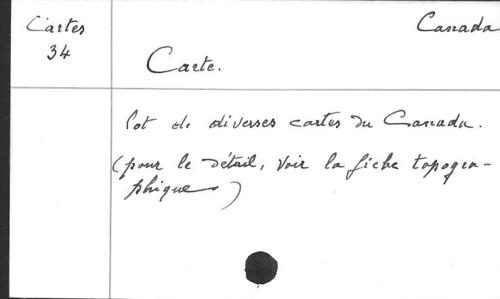 Cartes
34
Canada
Carte.
lot de diverses cartes du Canada.
(pour le détail, voir la fiche topogra-
phique)